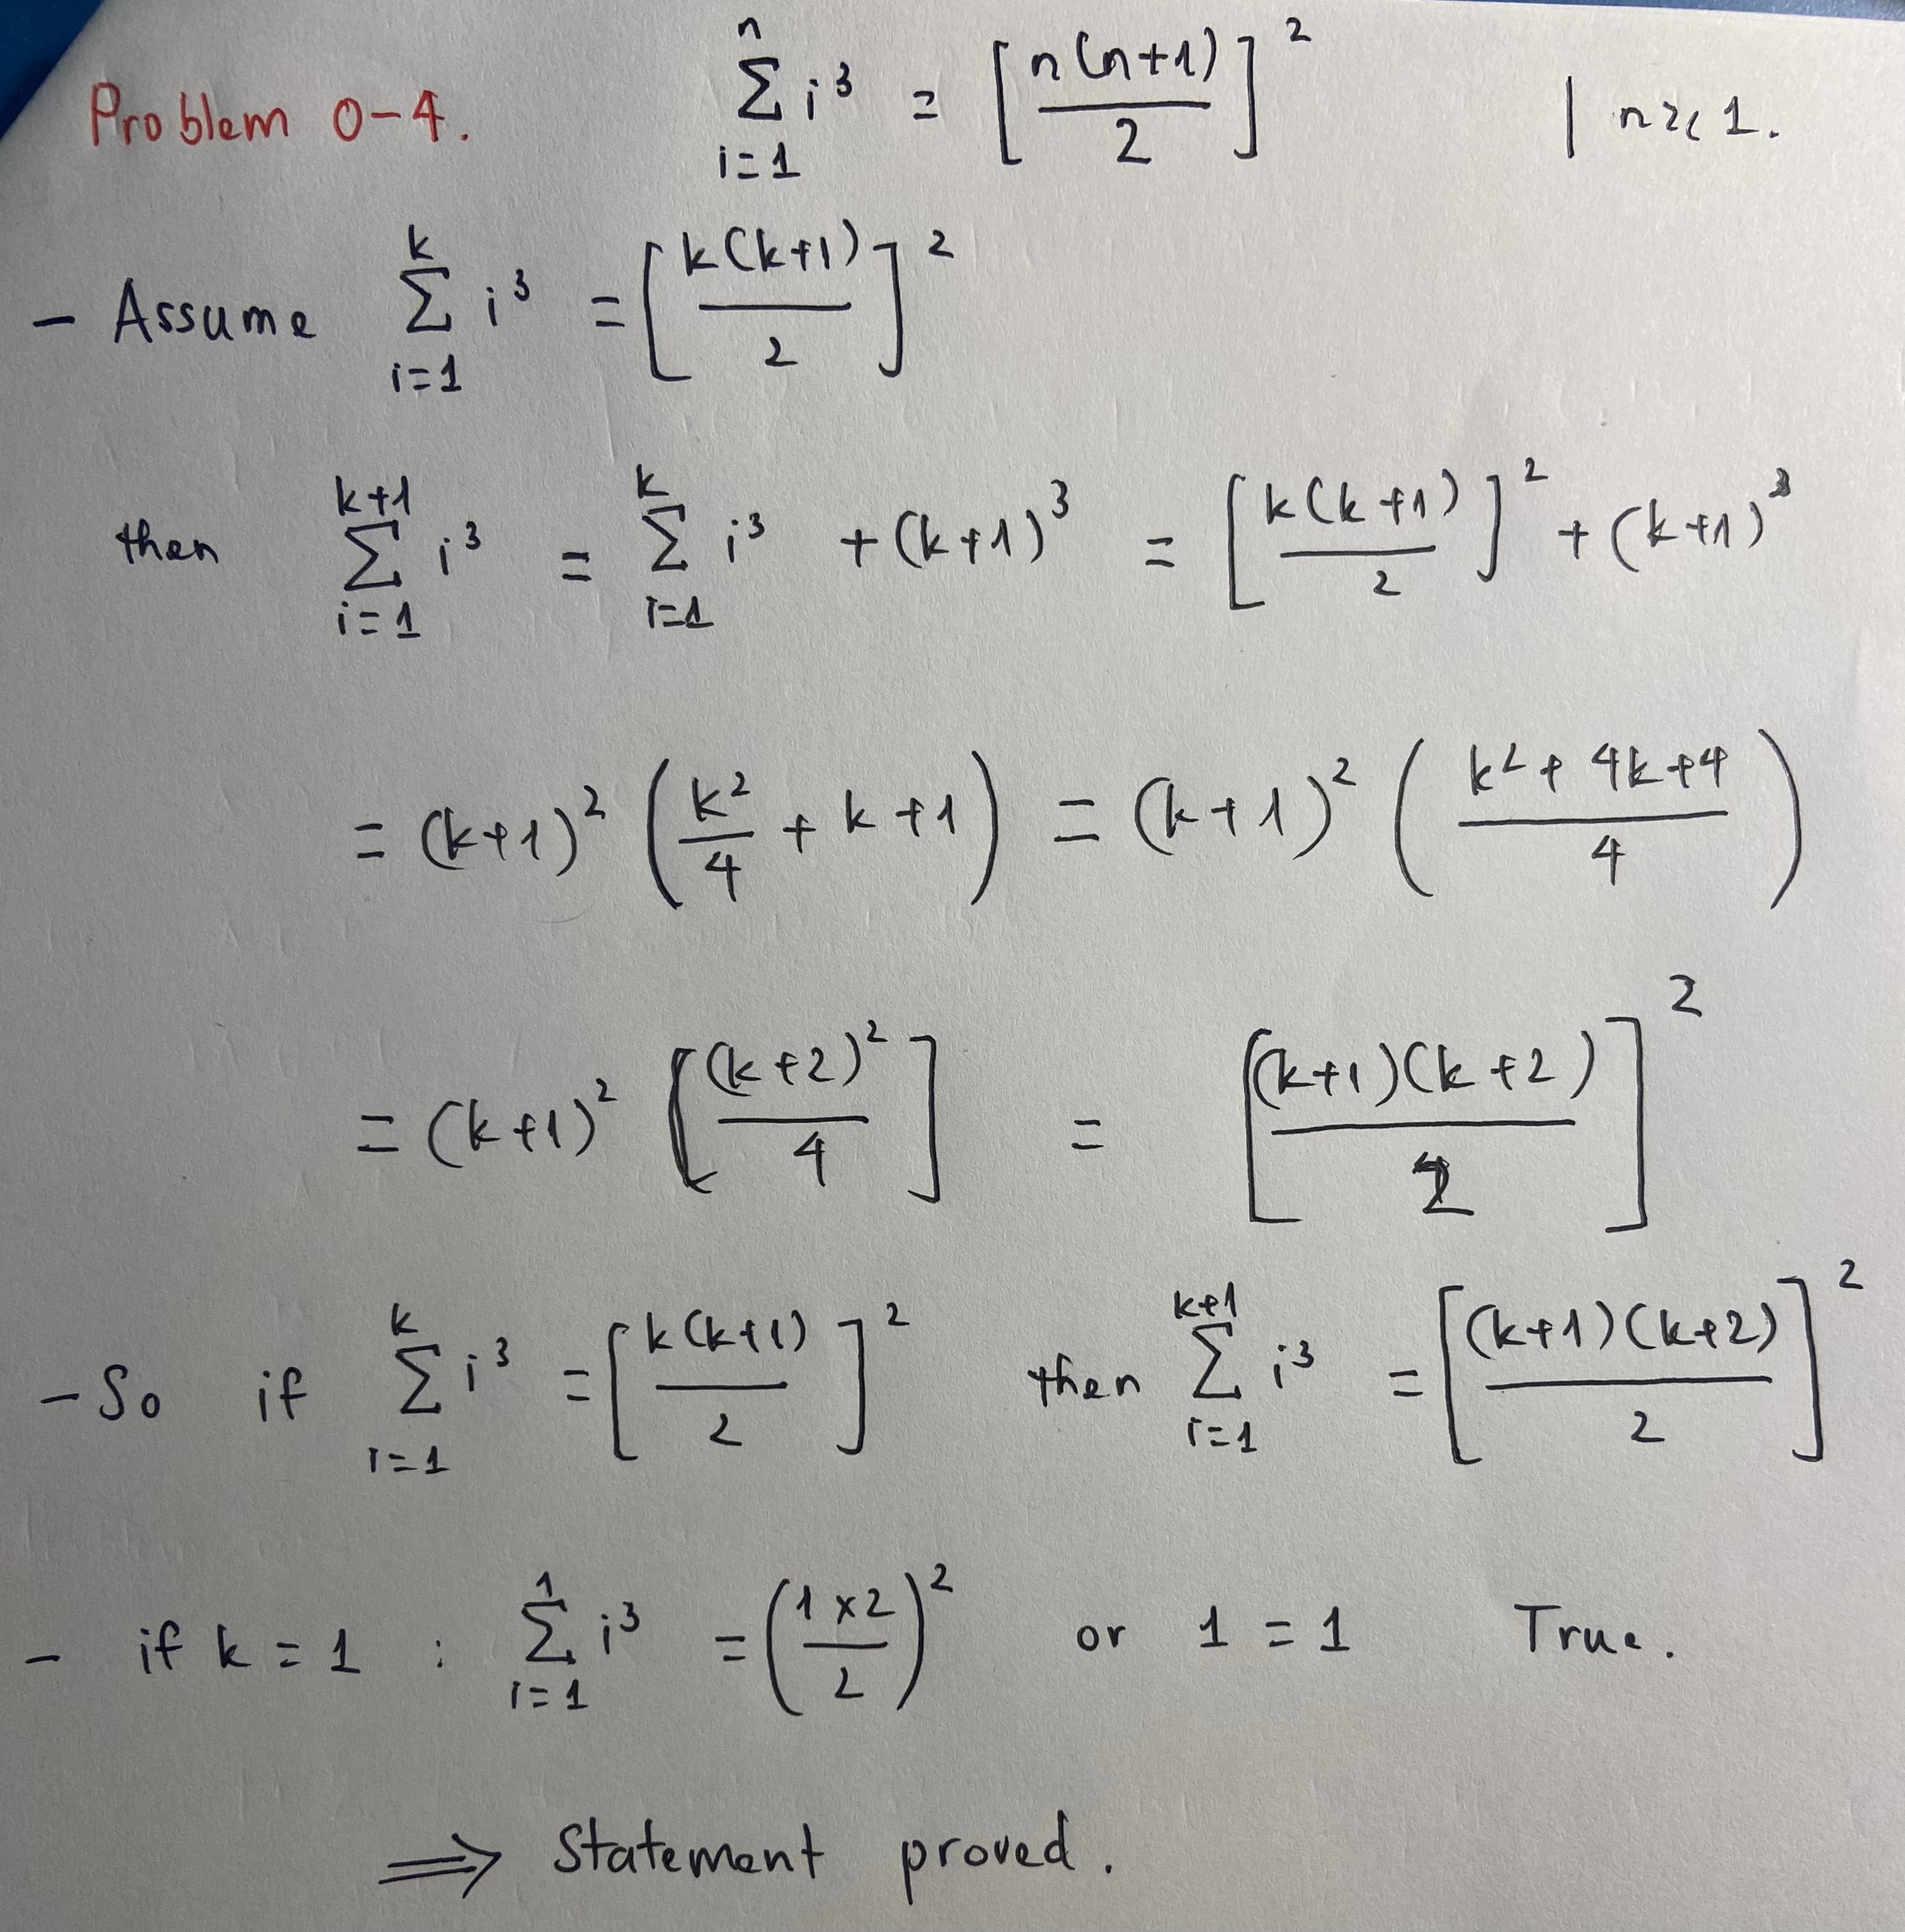 Problem 0-4. \sum_{i=1}^{n} i^3 = \left[ \frac{n(n+1)}{2} \right]^2 | n ≥ 1.
- Assume \sum_{i=1}^{k} i^3 = \left[ \frac{k(k+1)}{2} \right]^2
then \sum_{i=1}^{k+1} i^3 = \sum_{i=1}^{k} i^3 + (k+1)^3 = \left[ \frac{k(k+1)}{2} \right]^2 + (k+1)^3
= (k+1)^2 \left( \frac{k^2}{4} + k + 1 \right) = (k+1)^2 \left( \frac{k^2 + 4k + 4}{4} \right)
= (k+1)^2 \left[ \frac{(k+2)^2}{4} \right] = \left[ \frac{(k+1)(k+2)}{2} \right]^2
- So if \sum_{i=1}^{k} i^3 = \left[ \frac{k(k+1)}{2} \right]^2 then \sum_{i=1}^{k+1} i^3 = \left[ \frac{(k+1)(k+2)}{2} \right]^2
- if k = 1 : \sum_{i=1}^{1} i^3 = \left( \frac{1 × 2}{2} \right)^2 or 1 = 1 True.
⟹ Statement proved.